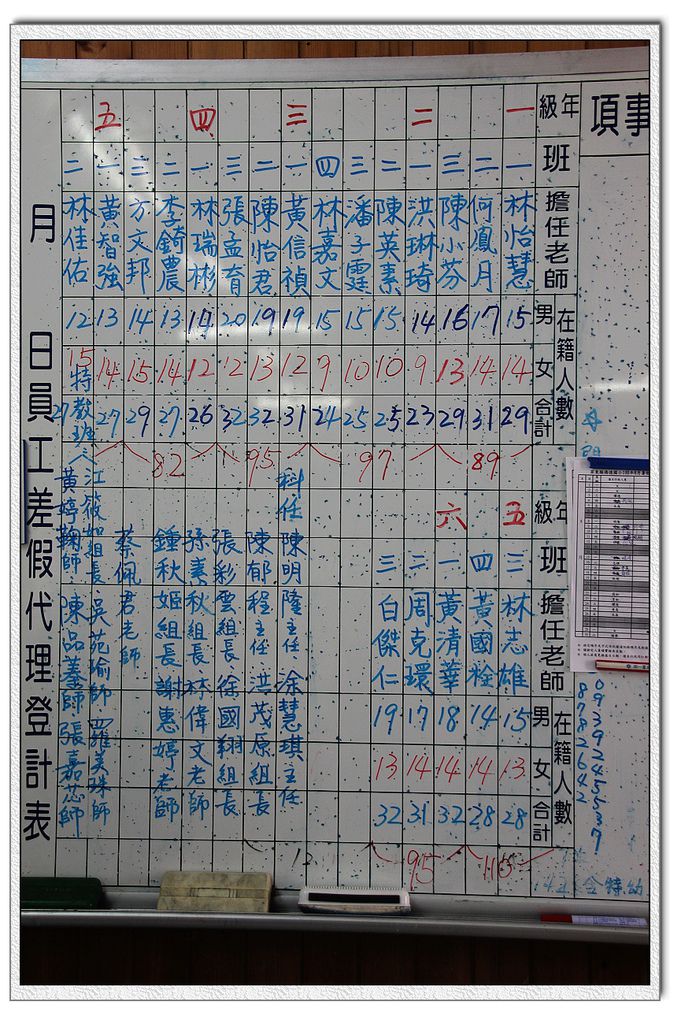 事項
年級 班 擔任老師 在籍人數 男 女 合計
一 一 林怡慧 15 14 29
二 何鳳月 17 14 31
三 陳小芬 16 13 29
二 一 洪琳琦 14 9 23
二 陳英素 15 10 25
三 潘子霆 15 10 25
四 林嘉文 15 9 24
三 一 黃信禎 19 12 31
二 陳怡君 19 13 32
三 張孟育 20 12 32
四 一 林瑞彬 14 12 26
二 李錡農 13 14 27
三 方文邦 14 15 29
五 一 黃智強 13 14 27
二 林佳佑 12 15 27
89
97
95
82
年級 班 擔任老師 在籍人數 男 女 合計
五 三 林志雄 15 13 28
四 黃國栓 14 14 28
六 一 黃清華 18 14 32
二 周克環 17 14 31
三 白傑仁 19 13 32
115
95
科任 陳明隆主任 徐慧琪主任
陳郁程主任 洪茂原組長
張彩雲組長 徐國翔組長
孫美秋組長 林偉文老師
鍾秋姬組長 謝惠婷老師
蔡佩君老師
特教班
江筱如組長 吳苑瑜師 羅美珠師
黃婷鞠師 陳品蓁師 張嘉芯師
月 日員工差假代理登計表